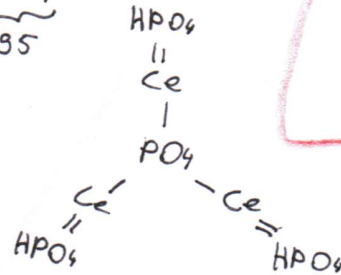 HPO4
95
Ce
PO4
Ce Ce
HPO4 HPO4